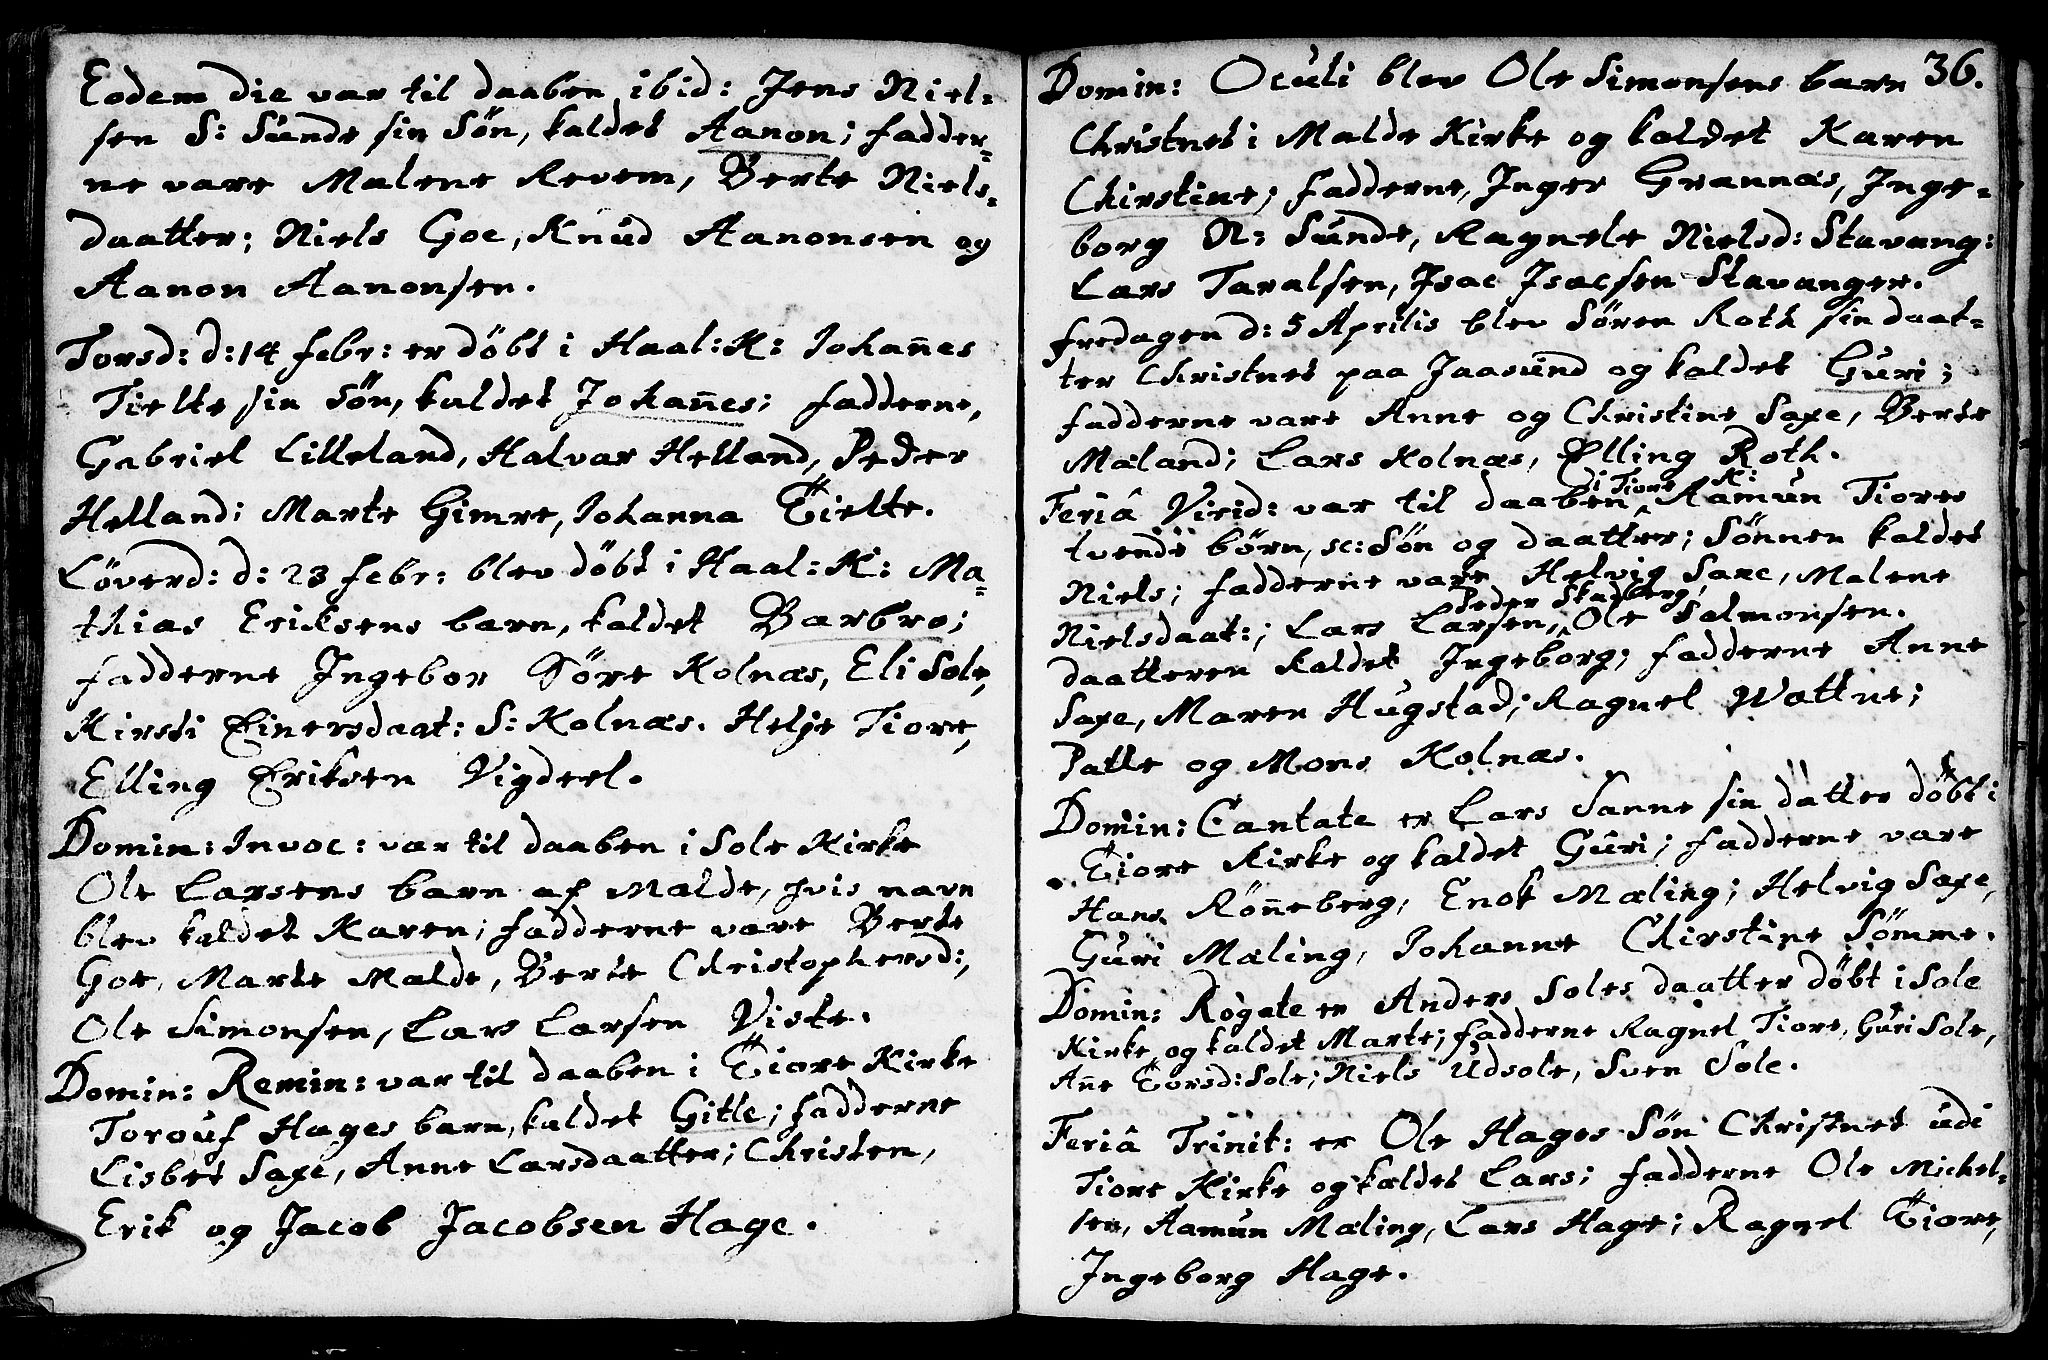 Eodem die var til daaben ibid: Jens Niel=
sen S: Sunde sin Søn, kaldet Aanon; fadder=
ne vare Malene Revem, Berte Niels=
daatter; Niels Goe, Knud Aanonsen og
Aanon Aanonsen.
Torsd: d: 14 febr: er döbt i Haal: K: Johan̄es
Tielte sin Søn, kaldet Johan̄es; fadderne,
Gabriel Lilleland, Halvar Helland, Peder
Helland; Marte Gimre, Johanna Tielte.
Løverd: d: 23 febr: blev döbt i Haal: K: Ma=
thias Eriksens barn, kaldet Barbro;
fadderne Ingebor Söre Kolnæs, Eli Sole,
Kirsti Einersdaat: S: Kolnæs. Helje Tiore,
Elling Eriksen Vigdeel.
Domin: Invoc: var til daaben i Sole Kirke
Ole Larsens barn af Malde, hvis navn
blev kaldet Karen; fadderne vare Berte
Goe, Marte Malde, Berte Christophersd:,
Ole Simonsen, Lars Larsen Viste.
Domin: Remin: var til daaben i Tiore Kirke
Torouf Hages barn, kaldet Gitle; fadderne
Lisbet Saxe, Anne Larsdaatter; Christen,
Erik og Jacob Jacobsen Hage.
36.
Domin: Oculi blev Ole Simonsens barn
Christnet i Malde Kirke og kaldet Karen
Chirstine; fadderne, Inger Grannæs, Inge=
borg N: Sunde, Ragnele Nielsd: Stavang:
Lars Taralsen, Isac Isacsen Stavanger.
fredagen d: 5 Aprilis blev Søren Roth sin daat=
ter Christnet paa Jaasund og kaldet Guri;
fadderne vare Anne og Christine Saxe, Berte
Mæland; Lars Kolnæs, Elling Roth.
i Tiore K:
Feriâ Virid: var til daaben Aamun Tiores
tvende börn, sc: Søn og daatter; Sønnen kaldet
Niels; fadderne vare Helvig Saxe, Malene
Peder Skadberg,
Nielsdaat:; Lars Larsen, Ole Salmonsen.
daatteren kaldet Ingeborg; fadderne Anne
Saxe, Maren Hugstad; Ragnel Wattne;
Patte og Mons Kolnæs.
Domin: Cantate er Lars Sanne sin datter döbt i
Tiore Kirke og kaldet Guri; fadderne vare
Hans Røn̄eberg, Enok Mæling; Helvig Saxe,
Guri Mæling, Johanne Chirstine Sömme.
Domin: Rogate er Anders Soles daatter döbt i Sole
Kirke, og kaldet Marte; fadderne Ragnel Tiore, Guri Sole,
An̄e Torsd: Sole; Niels Udsole, Sven Sole.
Feriâ Trinit: er Ole Hages Søn Christnet udi
Tiore Kirke og kaldet Lars; fadderne Ole Michel=
sen, Aamun Mæling, Lars Hage; Ragnel Tiore,
Ingeborg Hage.